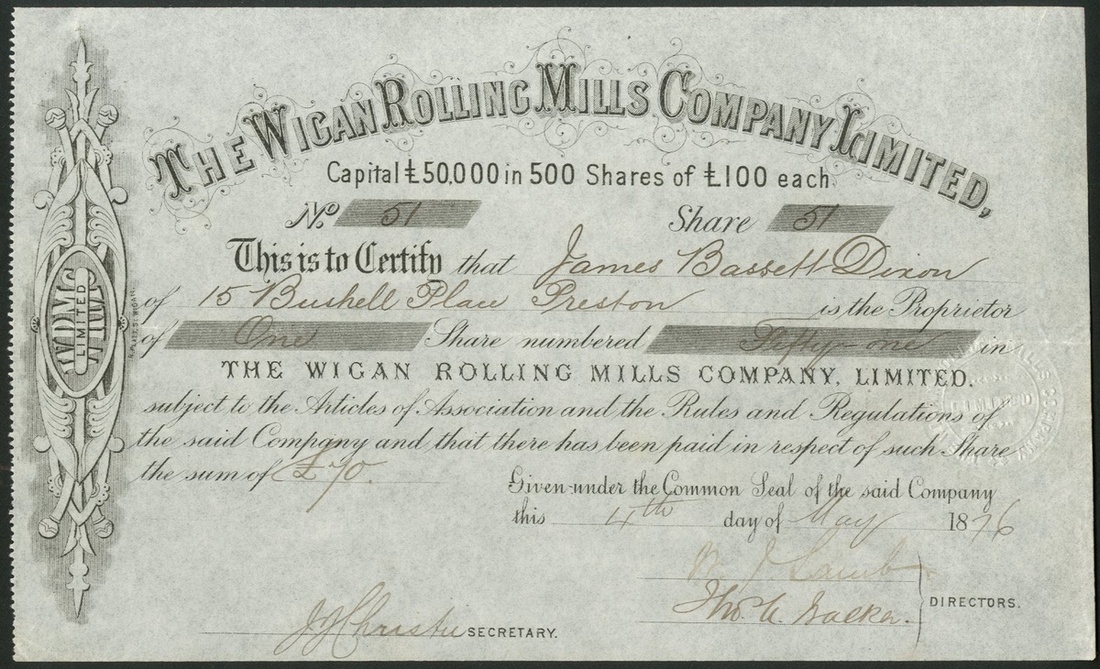 THE WIGAN ROLLING MILLS COMPANY LIMITED,
Capital £50,000 in 500 Shares of £100 each
No 51 Share 51
This is to Certify that James Bassett Dixon
of 15 Bushell Place Preston is the Proprietor
of One Share numbered Fifty-one in
THE WIGAN ROLLING MILLS COMPANY, LIMITED.
subject to the Articles of Association and the Rules and Regulations of
the said Company and that there has been paid in respect of such Share
the sum of £70.
Given under the Common Seal of the said Company
this 4th day of May 1876
DIRECTORS.
J J Christie SECRETARY.
LIMITED